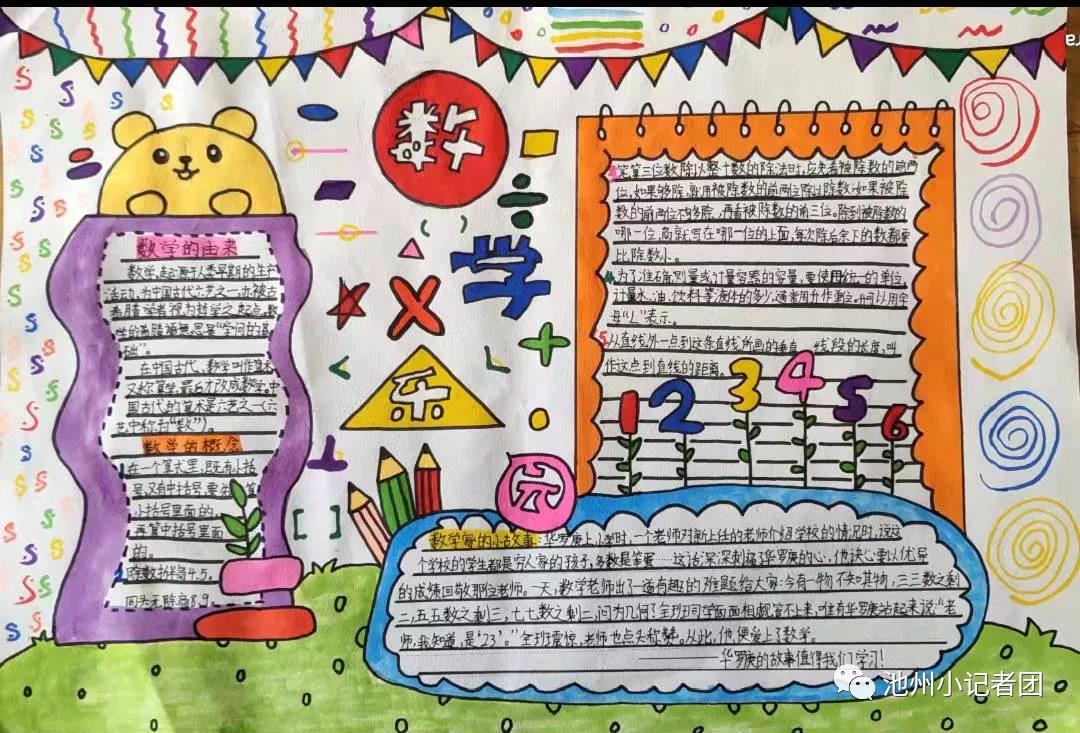 数学乐园
数学的由来
数学,起源于人类早期的生产
活动,为中国古代六艺之一,亦被古
希腊学者视为哲学之起点,数
学的希腊语意思是“学问的基
础”。
在中国古代,数学叫作算术,
又称算学,最后才改成数学。中
国古代的算术是六艺之一(六
艺中称为“数”)。
数学的概念
1在一个算式里,既有小括
号,又有中括号,要先算
小括号里面的,
再算中括号里面
的。
2除数折半商4.5,
同头无除商8.9
笔算三位数除以整十数的除法时,应先看被除数的前两
位,如果够除,就用被除数的前两位除以除数;如果被除
数的前两位不够除,再看被除数的前三位。除到被除数的
哪一位,商就写在哪一位的上面,每次除后余下的数都要
比除数小。
4为了准确测量或计量容器的容量,要使用统一的单位,
计量水、油、饮料等液体的多少,通常用升作单位,升可以用字
母“L”表示。
5从直线外一点到这条直线所画的垂直 线段的长度,叫
作这点到直线的距离。
1 2 3 4 5 6
数学家的小故事:华罗庚上小学时,一个老师对新上任的老师介绍学校的情况时,说这
个学校的学生都是穷人家的孩子,多数是笨蛋……这话深深刺痛了华罗庚的心,他决心要以优异
的成绩回敬那位老师。一天,数学老师出了一道有趣的难题给大家:今有一物不知其物,三三数之剩
三,五五数之剩三,七七数之剩二,问为几何?全班同学面面相觑答不上来,唯有华罗庚站起来说:“老
师,我知道,是‘23’。”全班震惊,老师也点头称赞。从此,他便爱上了数学。
——华罗庚的故事值得我们学习!
池州小记者团